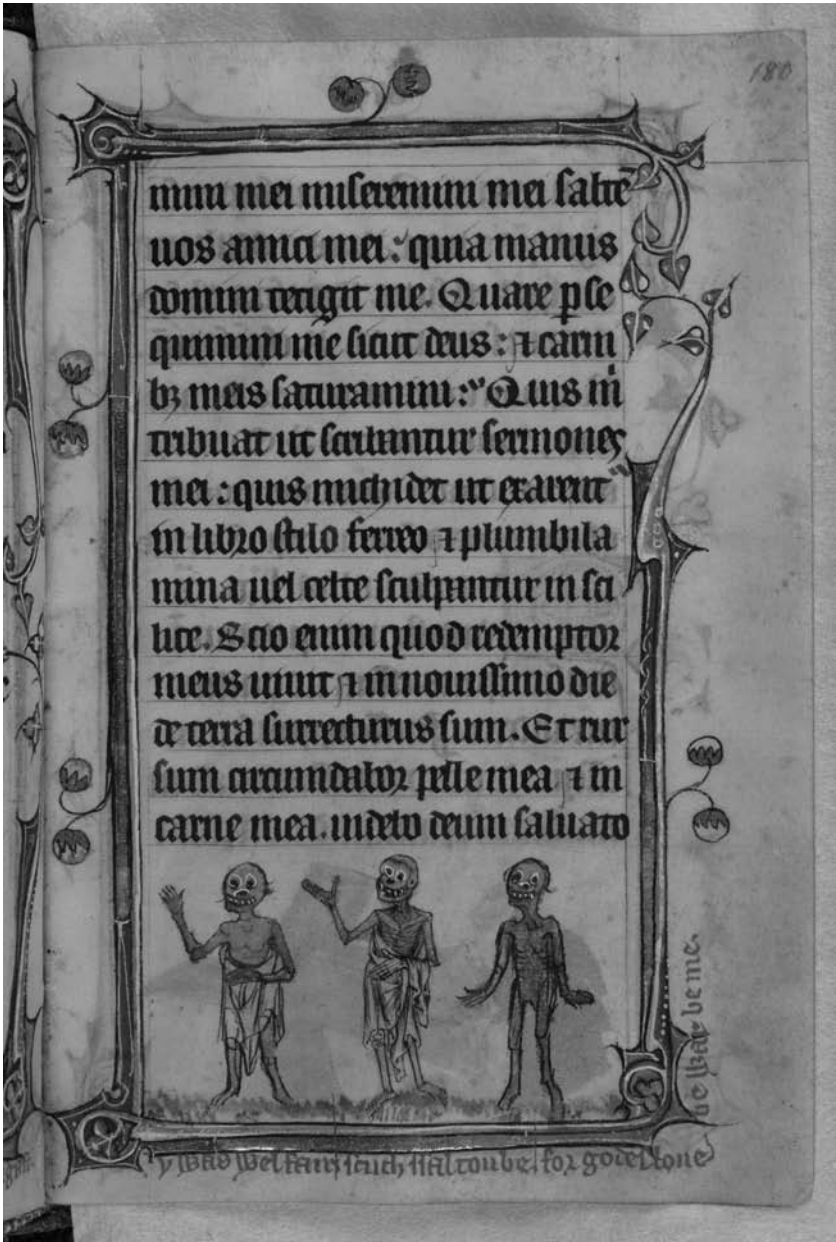 180
mini mei miseremini mei saltē
uos amici mei: quia manus
domini tetigit me. Quare ꝑse
quimini me sicut deus: ⁊ carni
bꝫ meis saturamini: Quis m̄
tribuat ut scribantur sermones
mei: quis michi det ut exarent᷑
in libro stilo ferreo ⁊ plumbi la
mina uel celte sculpantur in sci
lice. Scio enim quod redemptor
meus uiuit ⁊ in nouissimo die
de terra surrecturus sum. Et rur
sum circumdabor pelle mea ⁊ in
carne mea. uidebo deum saluato
y was wel fair scuch ssaltou be for godes loue
be whar be me.